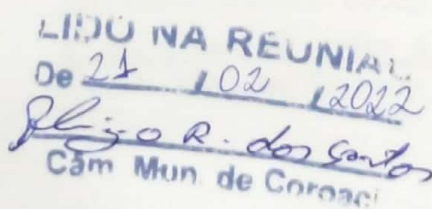 LIDO NA REUNIÃO
De 21 / 02 / 2022
R. dos Santos
Câm Mun. de Coroaci